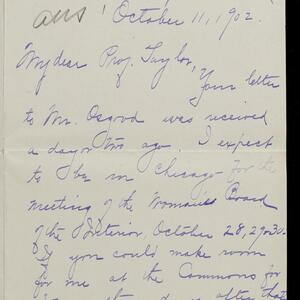 ans' October 11, 1902.
My dear Prof. Taylor,
Your letter
to Mr. Osgood was received
a day or two ago. I expect
to be in Chicago for the
meeting of the Woman's Board
of the Interior, October 28, 29 & 30.
If you could make room
for me at the Commons for
after that